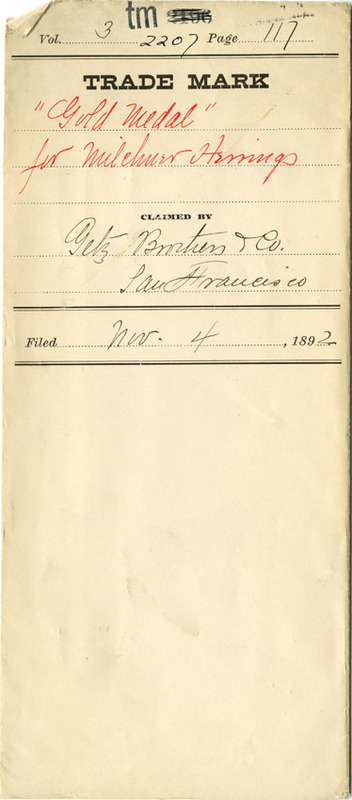 tm 2196
Vol. 3 2207 Page 117
TRADE MARK
"Gold Medal"
for Milchner Herrings
CLAIMED BY
Getz Brothers & Co.
San Francisco
Filed Nov. 4, 1892